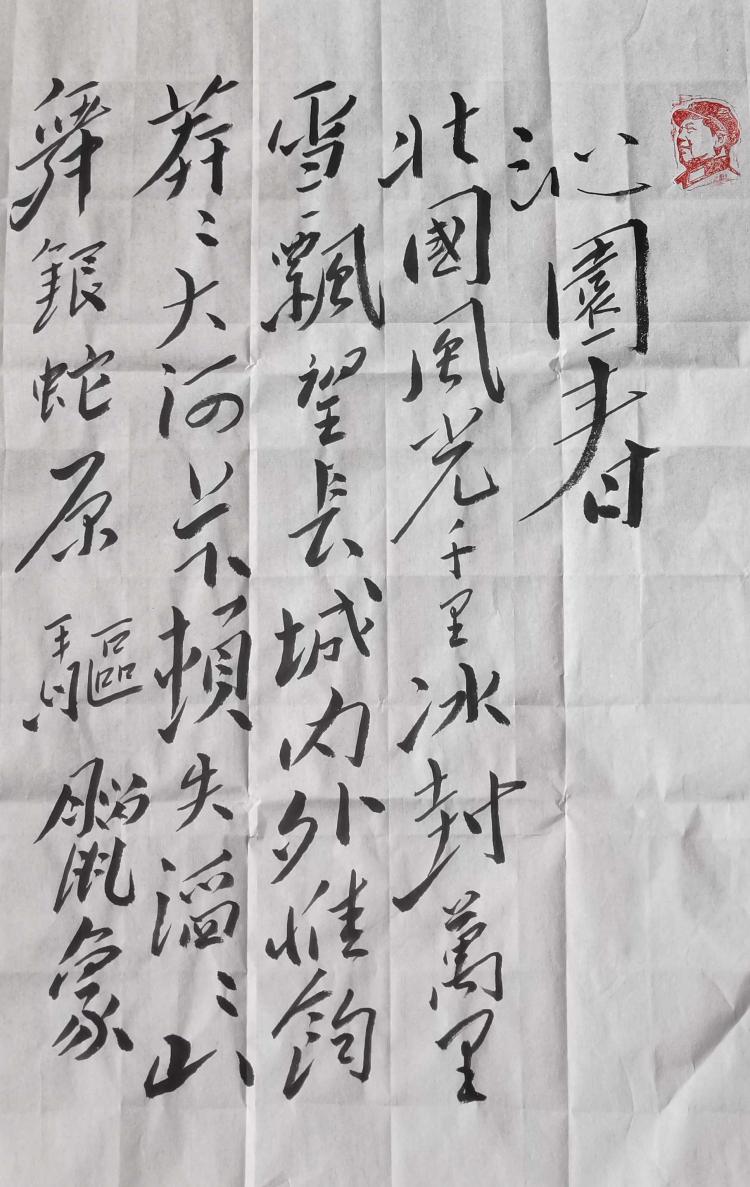 沁園春
北國風光千里冰封萬里
雪飄望長城内外惟
莽〻大河上下頓失滔〻山
舞銀蛇原驅臘象